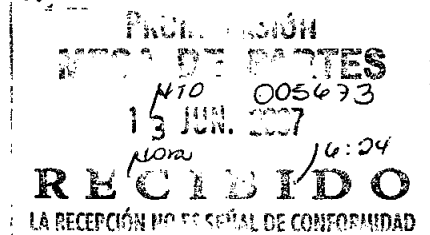 MESA DE PARTES
005673
13 JUN. 2007
Hora 16:24
RECIBIDO
LA RECEPCIÓN NO ES SEÑAL DE CONFORMIDAD